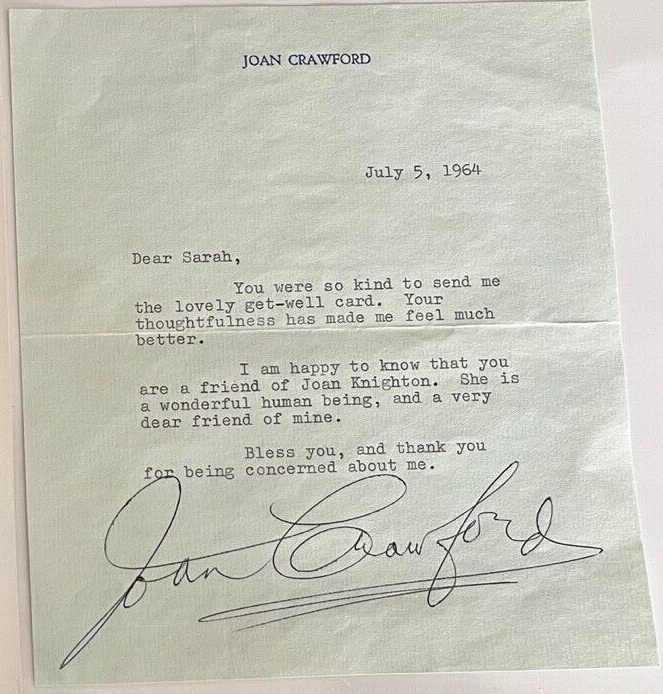 JOAN CRAWFORD
July 5, 1964
Dear Sarah,
You were so kind to send me
the lovely get-well card. Your
thoughtfulness has made me feel much
better.
I am happy to know that you
are a friend of Joan Knighton. She is
a wonderful human being, and a very
dear friend of mine.
Bless you, and thank you
for being concerned about me.
Joan Crawford